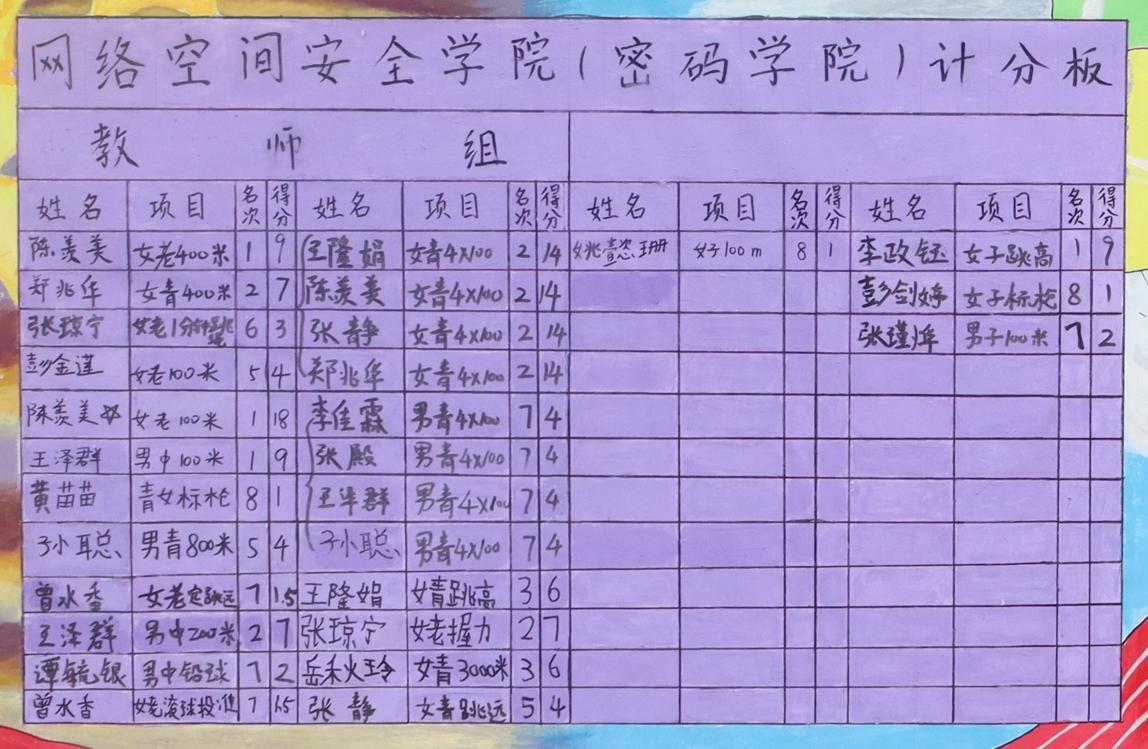 网络空间安全学院(密码学院)计分板
教师组
姓名 项目 名次 得分 姓名 项目 名次 得分 姓名 项目 名次 得分 姓名 项目 名次 得分
陈羡美 女老400米 1 9 王隆娟 女青4×100 2 14 姚懿恣珊 女子100m 8 1 李政钰 女子跳高 1 9
郑兆华 女青400米 2 7 陈羡美 女青4×100 2 14 彭剑婷 女子标枪 8 1
张琼宁 女老1分钟跳绳 6 3 张静 女青4×100 2 14 张瑾焯 男子100米 7 2
彭金莲 女老100米 5 4 郑兆华 女青4×100 2 14
陈羡美 女老100米 1 18 李佳霖 男青4×100 7 4
王泽群 男中100米 1 9 张殿 男青4×100 7 4
黄苗苗 青女标枪 8 1 王泽群 男青4×100 7 4
孙小聪 男青800米 5 4 孙小聪 男青4×100 7 4
曾水香 女老定跳远 7 1.5 王隆娟 女青跳高 3 6
王泽群 男中200米 2 7 张琼宁 女老握力 2 7
谭毓银 男中铅球 7 2 岳秋玲 女青3000米 3 6
曾水香 女老滚球投准 7 1.5 张静 女青跳远 5 4